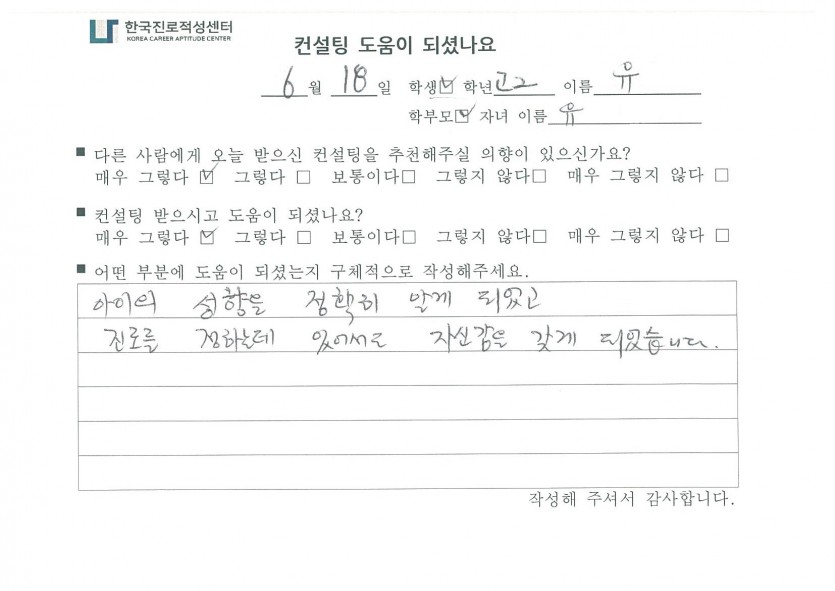 한국진로적성센터
KOREA CAREER APTITUDE CENTER
컨설팅 도움이 되셨나요
6월 18일 학생☑ 학년 고2 이름 유
학부모☑ 자녀 이름 유
■ 다른 사람에게 오늘 받으신 컨설팅을 추천해주실 의향이 있으신가요?
매우 그렇다 ☑ 그렇다 □ 보통이다□ 그렇지 않다□ 매우 그렇지 않다 □
■ 컨설팅 받으시고 도움이 되셨나요?
매우 그렇다 ☑ 그렇다 □ 보통이다□ 그렇지 않다□ 매우 그렇지 않다 □
■ 어떤 부분에 도움이 되셨는지 구체적으로 작성해주세요.
아이의 성향을 정확히 알게 되었고
진로를 정하는데 있어서도 자신감을 갖게 되었습니다.
작성해 주셔서 감사합니다.